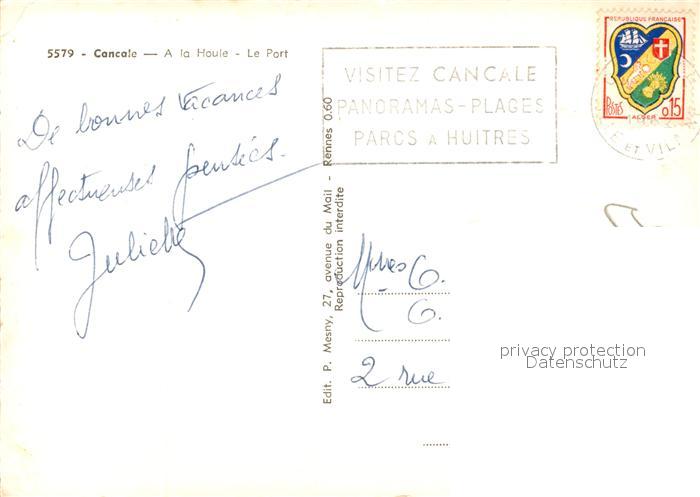 5579 - Cancale — A la Houle - Le Port
De bonnes vacances
affectueuses pensées.
Juliette
VISITEZ CANCALE
PANORAMAS-PLAGES
PARCS A HUITRES
REPUBLIQUE FRANÇAISE
POSTES
ALGER
0,15
E ET VIL
Edit. P. Mesny, 27, avenue du Mail - Rennes 0.60
Reproduction interdite
G.
G.
2 rue
privacy protection
Datenschutz